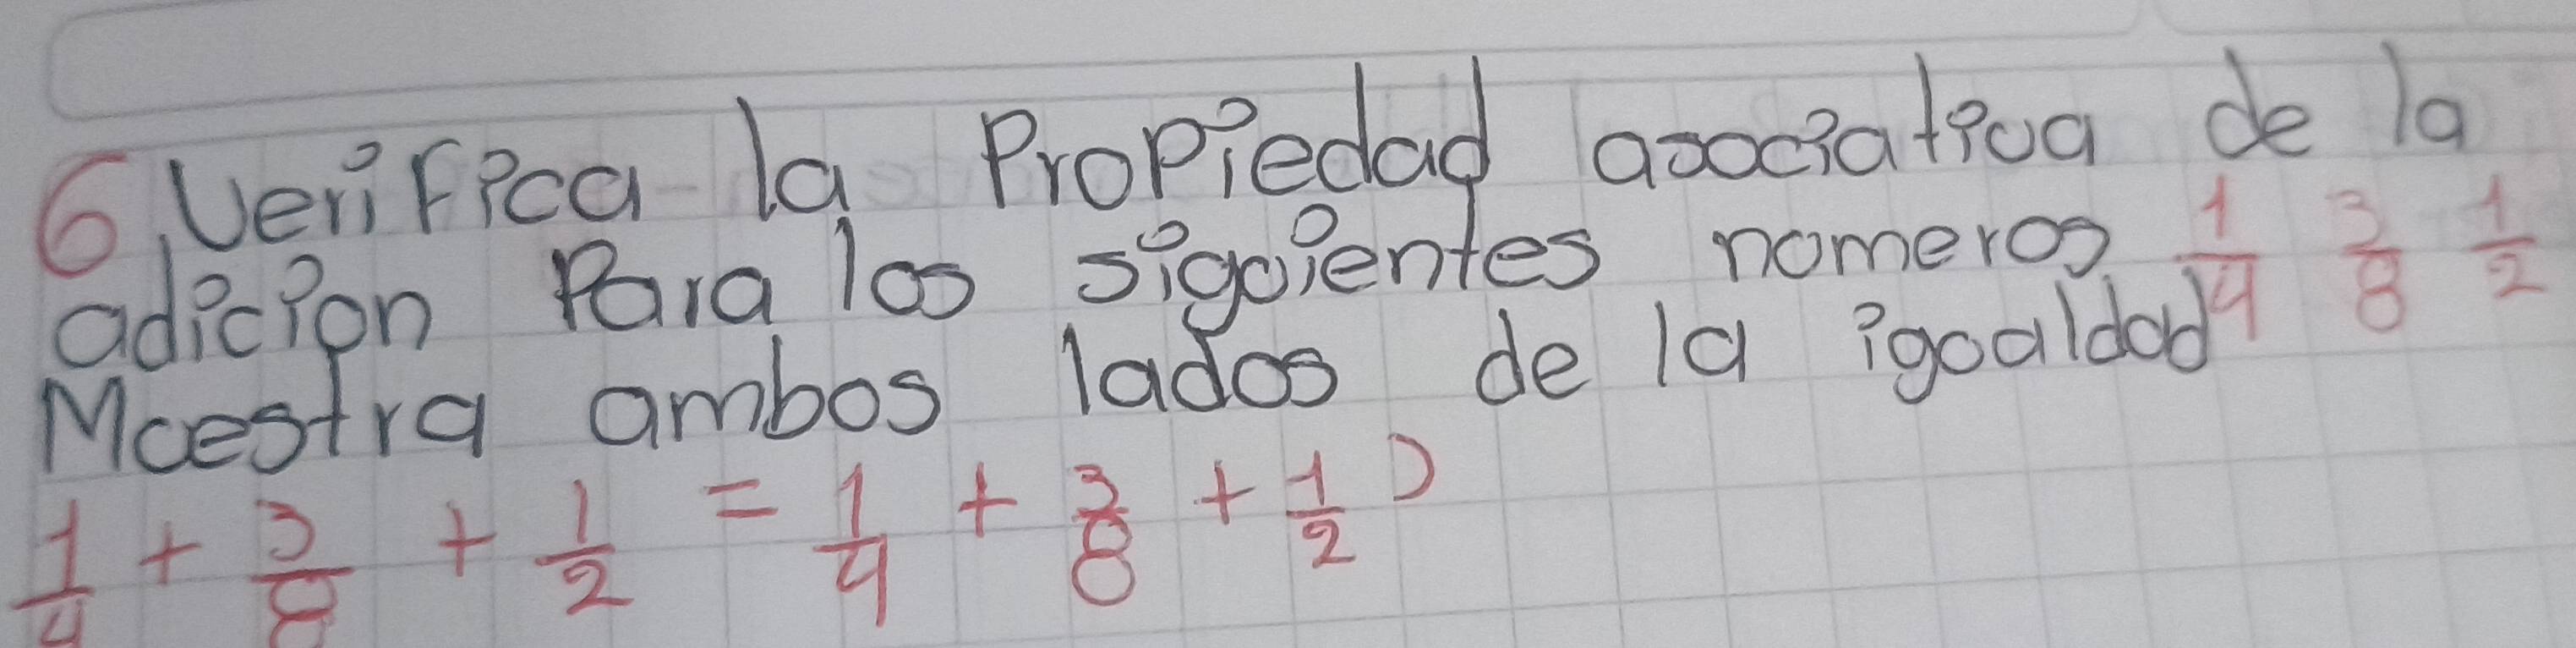 6. Verifica la Propiedad asociativa de la
adicion Para los siguientes numeros 1/4 3/8 1/2
Muestra ambos lados de la igualdad
1/4 + 3/8 + 1/2 = 1/4 + 3/8 + 1/2 )